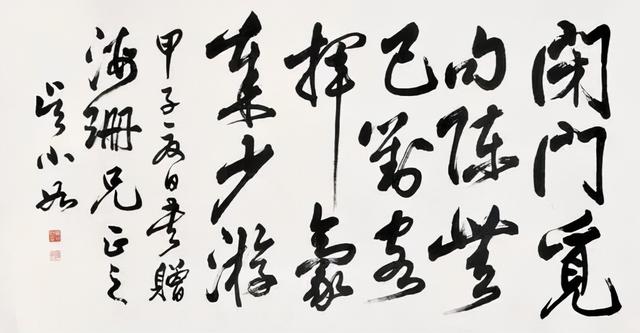 閉門覓
句陳無
己對客
揮毫
秦少游
甲子夏日书贈
海珊兄正之
吴小如